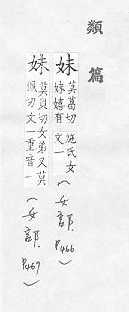 類篇
妺
莫葛切 施氏女
妺嬉有 文一
(女部 P.466)
妹
莫貝切女弟又莫
佩切文一重音一
(女部 P.467)